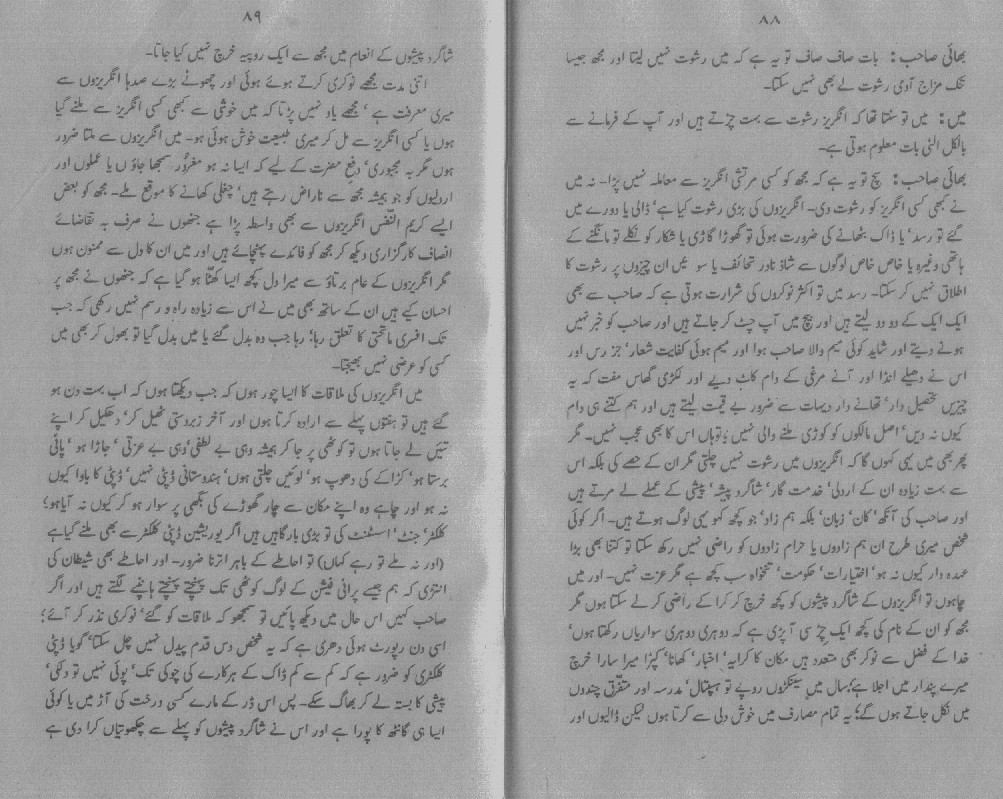 ۸۸
بھائی صاحب: بات صاف صاف تو یہ ہے کہ میں رشوت نہیں لیتا اور مجھ جیسا
تنک مزاج آدمی رشوت لے بھی نہیں سکتا۔
میں: میں تو سنتا تھا کہ انگریز رشوت سے بہت چڑتے ہیں اور آپ کے فرمانے سے
بالکل الٹی بات معلوم ہوتی ہے۔
بھائی صاحب: سچ تو یہ ہے کہ مجھ کو کسی مرتشی انگریز سے معاملہ نہیں پڑا۔ نہ میں
نے کبھی کسی انگریز کو رشوت دی۔ انگریزوں کی بڑی رشوت کیا ہے، ڈالی یا دورے میں
گئے تو رسد، یا ڈاک بٹھانے کی ضرورت ہوئی تو گھوڑا گاڑی یا شکار کو نکلے تو مانگنے کے
ہاتھی وغیرہ یا خاص خاص لوگوں سے شاذ نادر تحائف یا سو میں ان چیزوں پر رشوت کا
اطلاق نہیں کر سکتا۔ رسد میں تو اکثر نوکروں کی شرارت ہوتی ہے کہ صاحب سے بھی
ایک ایک کے دو دو لیتے ہیں اور بیچ میں آپ چٹ کر جاتے ہیں اور صاحب کو خبر نہیں
ہونے دیتے اور شاید کوئی میم والا صاحب ہوا اور میم ہوئی کفایت شعار، جز رس اور
اس نے دھیلے انڈا اور آنے مرغی کے دام کاٹ دیے اور لکڑی گھاس مفت کہ یہ
چیزیں تحصیل دار، تھانے دار دیہات سے ضرور بے قیمت لیتے ہیں اور ہم کتنے ہی دام
کیوں نہ دیں، اصل مالکوں کو کوڑی ملنے والی نہیں؛ تو ہاں اس کا بھی عجب نہیں۔ مگر
پھر بھی میں یہی کہوں گا کہ انگریزوں میں رشوت نہیں چلتی مگر ان کے حصے کی بلکہ اس
سے بہت زیادہ ان کے اردلی، خدمت گار، شاگرد پیشہ، پیشی کے عملے لے مرتے ہیں
اور صاحب کی آنکھ، کان، زبان، بلکہ ہم زاد، جو کچھ کہو یہی لوگ ہوتے ہیں۔ اگر کوئی
شخص میری طرح ان ہم زادوں یا حرام زادوں کو راضی نہیں رکھ سکتا تو کتنا بھی بڑا
عہدہ دار کیوں نہ ہو، اختیارات، حکومت، تنخواہ سب کچھ ہے مگر عزت نہیں۔ اور میں
چاہوں تو انگریزوں کے شاگرد پیشوں کو کچھ خرچ کر کرا کے راضی کر لے سکتا ہوں مگر
مجھ کو ان کے نام کی کچھ ایک چڑ سی آ پڑی ہے کہ دوہری دوہری سواریاں رکھتا ہوں،
خدا کے فضل سے نوکر بھی متعدد ہیں مکان کا کرایہ، اخبار، کھانا، کپڑا میرا سارا خرچ
میرے پندار میں اجلا ہے؛ سال میں سینکڑوں روپے تو ہسپتال، مدرسہ اور متفرق چندوں
میں نکل جاتے ہوں گے؛ یہ تمام مصارف میں خوش دلی سے کرتا ہوں لیکن ڈالیوں اور
۸۹
شاگرد پیشوں کے انعام میں مجھ سے ایک روپیہ خرچ نہیں کیا جاتا۔
اتنی مدت مجھے نوکری کرتے ہوئے ہوئی اور چھوٹے بڑے صدہا انگریزوں سے
میری معرفت ہے، مجھے یاد نہیں پڑتا کہ میں خوشی سے کبھی کسی انگریز سے ملنے گیا
ہوں یا کسی انگریز سے مل کر میری طبیعت خوش ہوئی ہو۔ میں انگریزوں سے ملتا ضرور
ہوں مگر بہ مجبوری، دفع مضرت کے لیے کہ ایسا نہ ہو مغرور سمجھا جاؤں یا عملوں اور
اردلیوں کو جو ہمیشہ مجھ سے ناراض رہتے ہیں، چغلی کھانے کا موقع ملے۔ مجھ کو بعض
ایسے کریم النفس انگریزوں سے بھی واسطہ پڑا ہے جنھوں نے صرف بہ تقاضائے
انصاف کارگزاری دیکھ کر مجھ کو فائدے پہنچائے ہیں اور میں ان کا دل سے ممنون ہوں
مگر انگریزوں کے عام برتاؤ سے میرا دل کچھ ایسا کھٹا ہو گیا ہے کہ جنھوں نے مجھ پر
احسان کیے ہیں ان کے ساتھ بھی میں نے اس سے زیادہ راہ و رسم نہیں رکھی کہ جب
تک افسری ماتحتی کا تعلق رہا؛ رہا جب وہ بدل گئے یا میں بدل گیا تو بھول کر بھی میں
کسی کو عرضی نہیں بھیجتا۔
میں انگریزوں کی ملاقات کا ایسا چور ہوں کہ جب دیکھتا ہوں کہ اب بہت دن ہو
گئے ہیں تو ہفتوں پہلے سے ارادہ کرتا ہوں اور آخر زبردستی ٹھیل کر، دھکیل کر اپنے
تئیں لے جاتا ہوں تو کوٹھی پر جا کر ہمیشہ وہی بے لطفی، وہی بے عزتی، جاڑا ہو، پانی
برستا ہو، کڑاکے کی دھوپ ہو، لوئیں چلتی ہوں، ہندوستانی ڈپٹی نہیں، ڈپٹی کا باوا کیوں
نہ ہو اور چاہے وہ اپنے مکان سے چار گھوڑے کی بگھی پر سوار ہو کر کیوں نہ آیا ہو؛
کلکٹر، جنٹ، اسسٹنٹ کی تو بڑی بارگاہیں ہیں اگر یوریشین ڈپٹی کلکٹر سے بھی ملنے گیا ہے
(اور نہ ملے تو رہے کہاں) تو احاطے کے باہر اترنا ضرور۔ اور احاطے بھی شیطان کی
انتڑی کہ ہم جیسے پرانی فیشن کے لوگ کوٹھی تک پہنچتے پہنچتے ہانپنے لگتے ہیں اور اگر
صاحب کہیں اس حال میں دیکھ پائیں تو سمجھو کہ ملاقات کو گئے، نوکری نذر کر آئے؛
اسی دن رپورٹ ہوئی دھری ہے کہ یہ شخص دس قدم پیدل نہیں چل سکتا، گویا ڈپٹی
کلکٹری کو ضرور ہے کہ کم سے کم ڈاک کے ہرکارے کی چوکی تک، پوئی نہیں تو دلکی،
پیشی کا بستہ لے کر بھاگ سکے۔ پس اس ڈر کے مارے کسی درخت کی آڑ میں یا کوئی
ایسا ہی گانٹھ کا پورا ہے اور اس نے شاگرد پیشوں کو پہلے سے چکھوتیاں کرا دی ہے